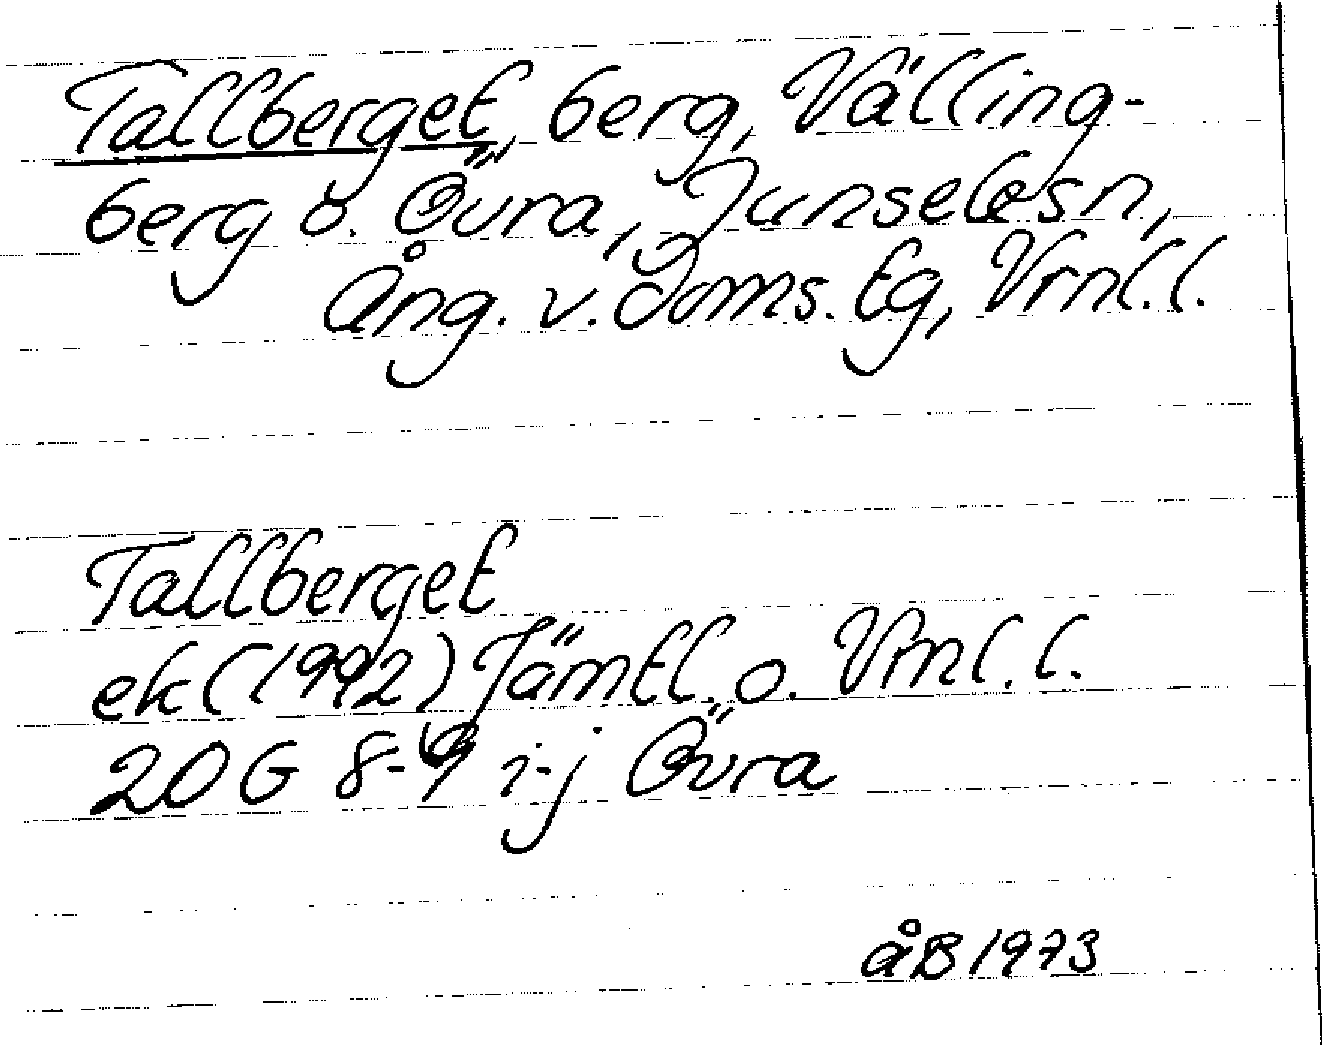 Tallberget, berg, Välling-
berg o. Övra, Junselesn,
Ång. v. Doms. tg, Vrnl.l.
Tallberget
ek (1992) Jämtl. o. Vrnl.l.
20 G 8-9 i-j Övra
åB 1973